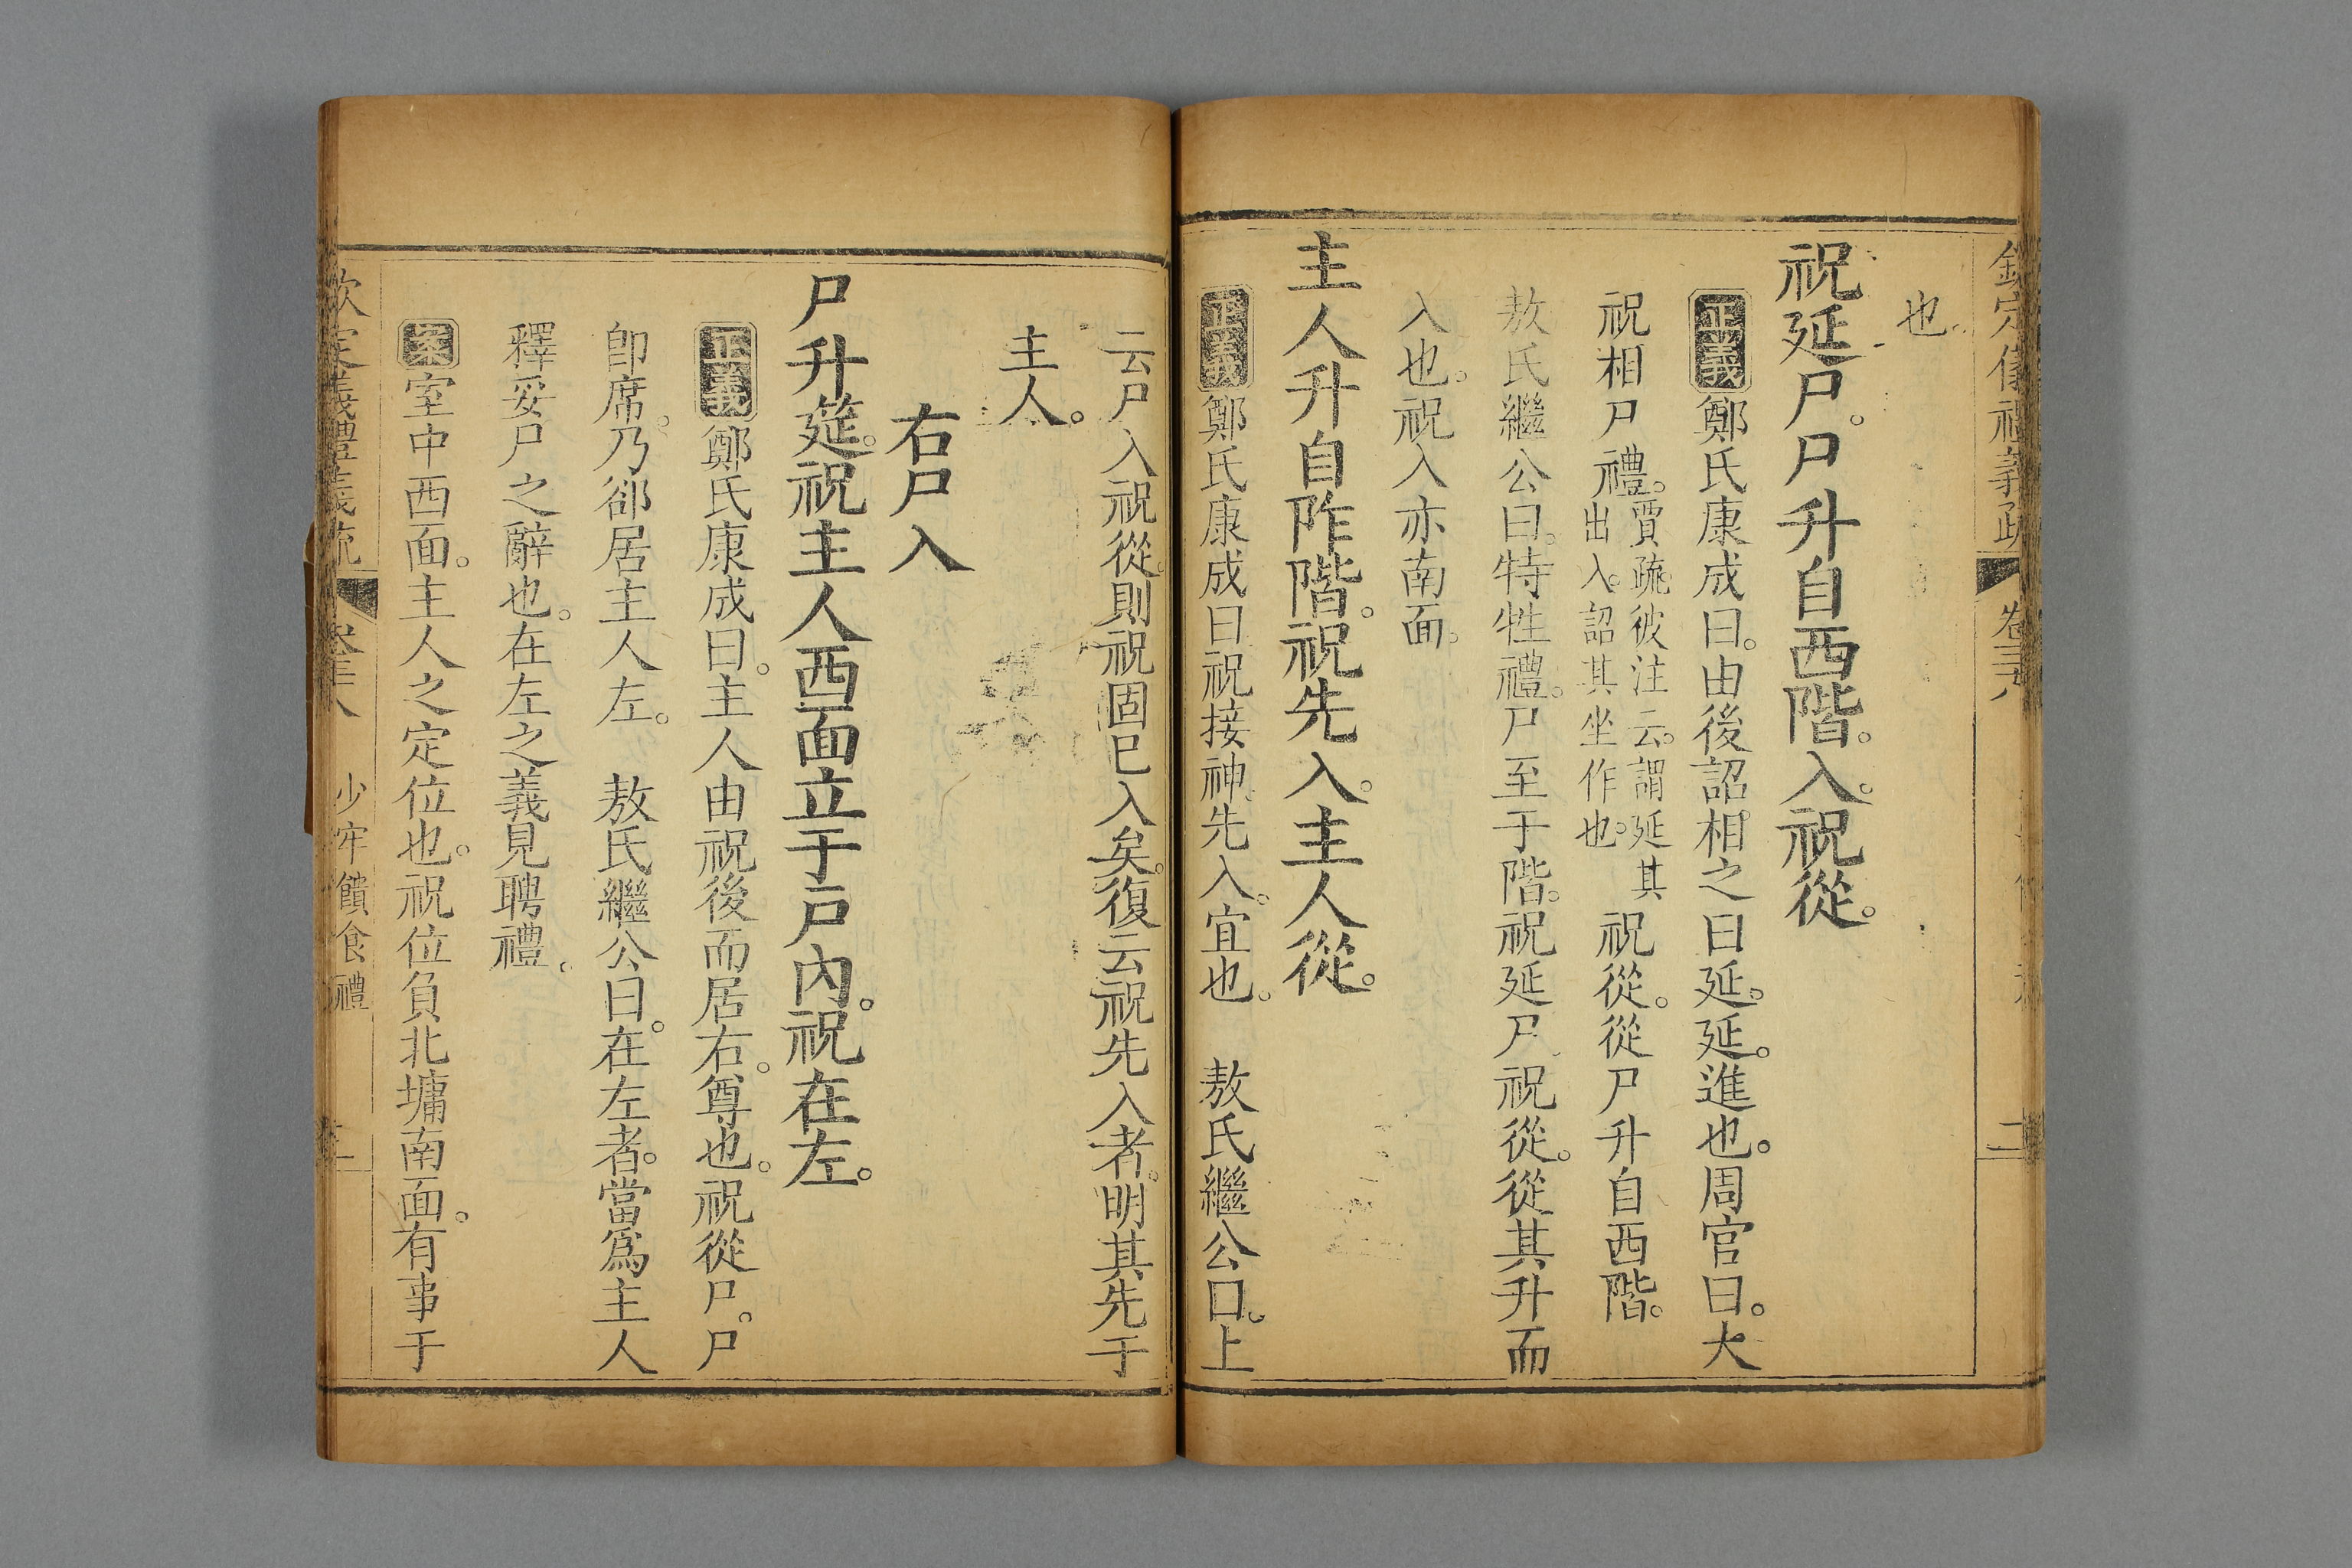 欽定儀禮義疏 卷三十八
也。
祝延尸。尸升自西階。入。祝從。
正義鄭氏康成曰。由後詔相之曰延。延。進也。周官曰。大
祝相尸禮。賈疏。彼注云。謂延其出入。詔其坐作也。祝從。從尸升自西階。
敖氏繼公曰。特牲禮。尸至于階。祝延尸。祝從。從其升而
入也。祝入亦南面。
主人升自阼階。祝先入。主人從。
正義鄭氏康成曰。祝接神。先入。宜也。 敖氏繼公曰。上
云尸入祝從。則祝固巳入矣。復云祝先入者。明其先于
主人。
右尸入
尸升筵。祝主人西面立于戸內。祝在左。
正義鄭氏康成曰。主人由祝後而居右。尊也。祝從尸。尸
卽席。乃郤居主人左。 敖氏繼公曰。在左者。當爲主人
釋妥尸之辭也。在左之義見聘禮。
案室中西面。主人之定位也。祝位負北墉南面。有事于
欽定儀禮義疏 卷三十八 少牢饋食禮